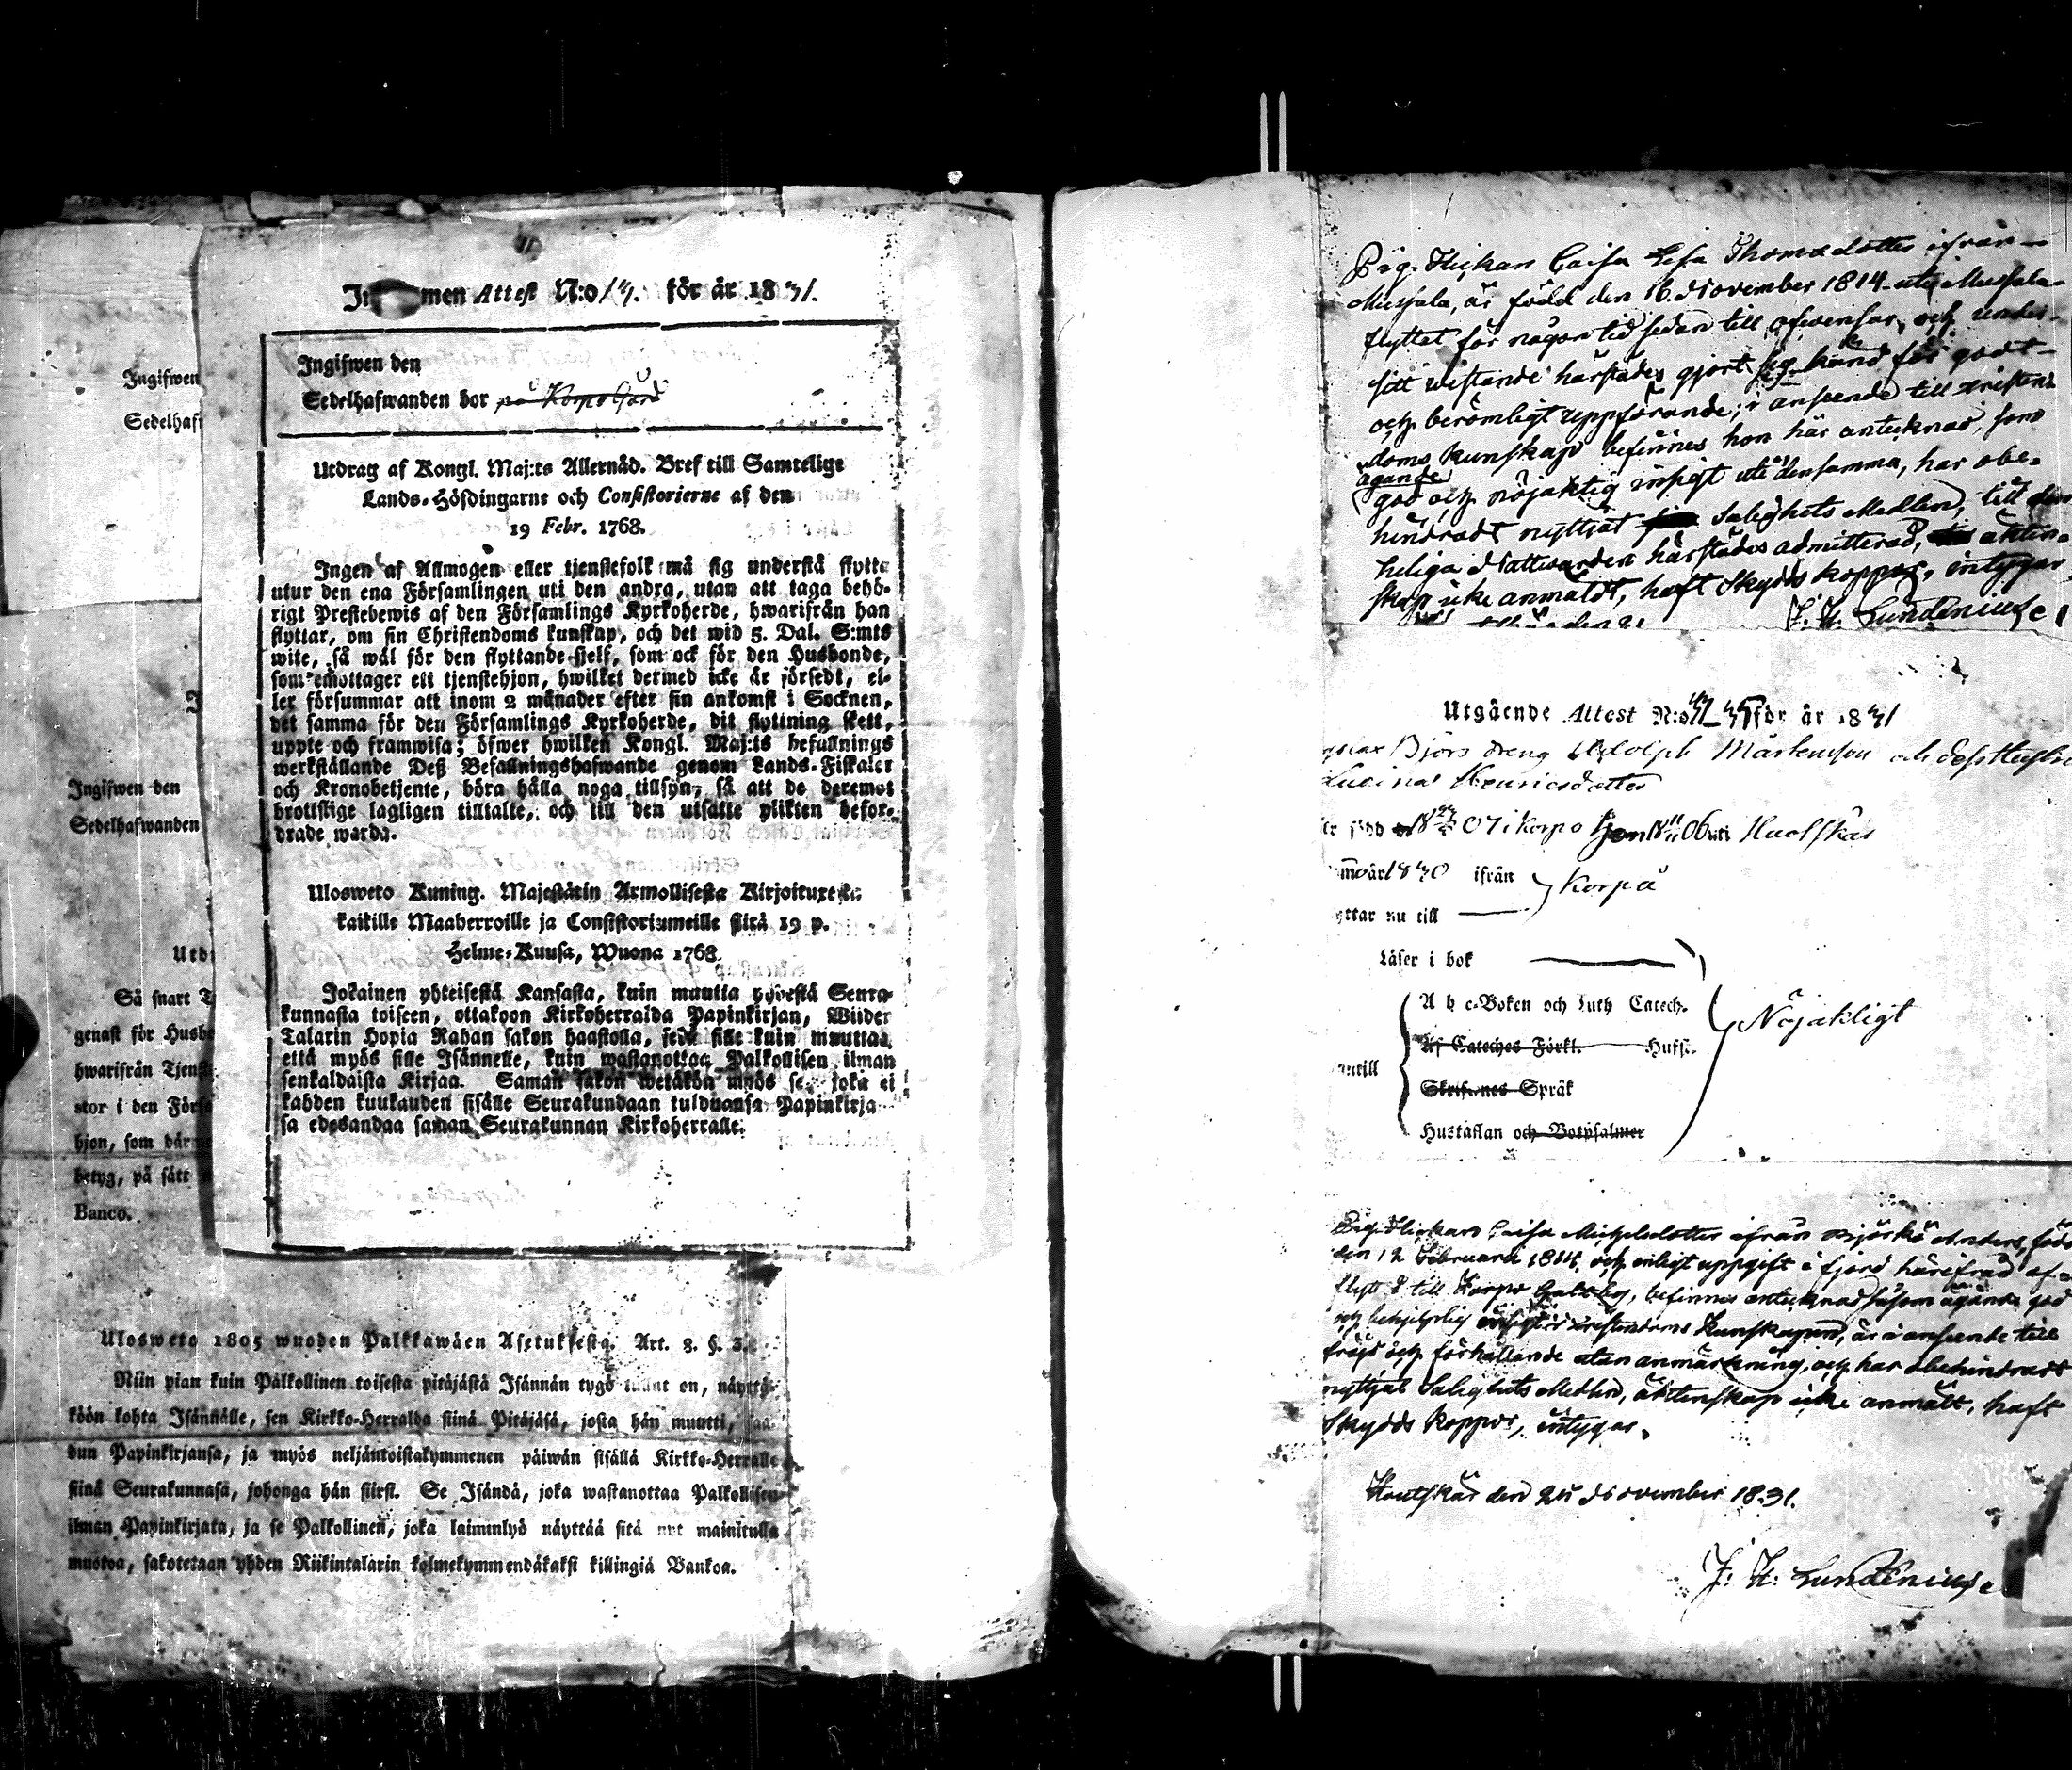 Inkommen Attest N:o 13. för år 1831.
Ingifwen den
Sedelhafwanden bor på Korpo Gård
Utdrag af Kongl. Maj:ts Allernåd. Bref till Samtelige
Lands-Höfdingarne och Consistorierne af den
19 Febr. 1768.
Ingen af Allmogen eller tjenstefolk må sig understå flytta
utur den ena Församlingen uti den andra, utan att taga behö-
rigt Prestebewis af den Församlings Kyrkoherde, hwarifrån han
flyttar, om sin Christendoms kunskap, och det wid 5. Dal. S:mts
wite, så wäl för den flyttande sjelf, som ock för den Husbonde,
som emottager ett tjenstehjon, hwilket dermed icke är försedt, el-
ler försummar att inom 2 månader efter sin ankomst i Socknen,
det samma för den Församlings Kyrkoherde, dit flyttning skett,
uppte och framwisa; öfwer hwilken Kongl. Maj:ts befallnings
werkställande Deß Befallningshafwande genom Lands-Fiskaler
och Kronobetjente, böra hålla noga tillsyn, så att de deremot
brottslige lagligen tilltalte, och till den utsatte plikten befor-
drade warda.
Ulosweto Kuning. Majestätin Armollisesta Kirjoituxesta
kaikille Maaherroille ja Consistoriumeille siitä 19 p.
Helme-Kuusa, Wuona 1768.
Jokainen yhteisestä Kansasta, kuin muutta yhdestä Seura-
kunnasta toiseen, ottakoon Kirkoherralda Papinkirjan, Wiider
Talarin Hopia Rahan sakon haastolla, sekä sille kuin muuttaa,
että myös sille Isännelle, kuin wastanottaa Palkollisen ilman
senkaldaista Kirjaa. Saman sakon wetäkön myös se, joka ei
kahden kuukauden sisälle Seurakundaan tulduansa Papinkirja
sa edesandaa saman Seurakunnan Kirkoherralle.
Ingifwen
Sedelhaf
Ingifwen den
Sedelhafwanden
Utd
Så snart T
genast för Husb
hwarifrån Tjen
stor i den Förs
hjon, som där
betyg, på sätt
Banco.
Ulosweto 1805 wuoden Palkkawäen Asetuksesta. Art. 8. §. 3.
Niin pian kuin Palkollinen toisesta pitäjästä Isännän tygö tullut on, näyttä-
köön kohta Isännälle, sen Kirkko-Herralda siinä Pitäjäsä, josta hän muutti, saa-
dun Papinkirjansa, ja myös neljäntoistakymmenen päiwän sisällä Kirkko-Herralle
siinä Seurakunnasa, johonga hän siirsi. Se Isändä, joka wastanottaa Palkollisen
ilman Papinkirjata, ja se Palkollinen, joka laiminlyö näyttää sitä nyt mainitulla
muotoa, sakotetaan yhden Riikintalarin kolmekymmendäkaksi killingiä Bankoa.
Pig. Flickan Caisa Lesa Thomsdotter ifrån
Mussala, är född den 16 November 1814 uti Mussala
flyttat för någon tid sedan till Afwensar, och under
sitt wistande härstädes gjort sig känd för godt
och berömligt uppförande; i anseende till kristen-
doms kunskap befinnes hon här antecknad, som
ägande
god och nöjaktig insigt uti densamma, har obe-
hindradt nyttjat Salighets Medlen, till den
heliga Nattwarden härstädes admitterad, äkten-
skap icke anmäldt, haft Skydds koppor, intygar
J. H. Lundenius
Utgående Attest N:o för år 1831
Björs dreng Adolph Mårtensson och dess Hustru
Lucina Henricsdotter
född 1807 i Korpo 1806 uti Houtskär
år 1830 ifrån
Korpo
yttar nu till
Läser i bok
A b c-Boken och Luth Catech.
Af Cateches Förkl. Hufst.
Skriftenes Språk
Hustaflan och Botpsalmer
Nöjakligt
Pig. Flickan Caisa Michelsdotter ifrån Björkö Anders, född
den 12 Februarii 1814, och enligt uppgift i fjord härifrån af-
flyttad till Korpo Galtby, befinnes antecknad såsom ägande god
och behjelplig insigt i kristendoms kunskapen, är i anseende till
fräjd och förhållande utan anmärkning, och har obehindradt
nyttjat Salighets Medlen, äktenskap icke anmält, haft
Skydds koppor, intygar.
Houtskär den 25 November 1831.
J. H. Lundenius